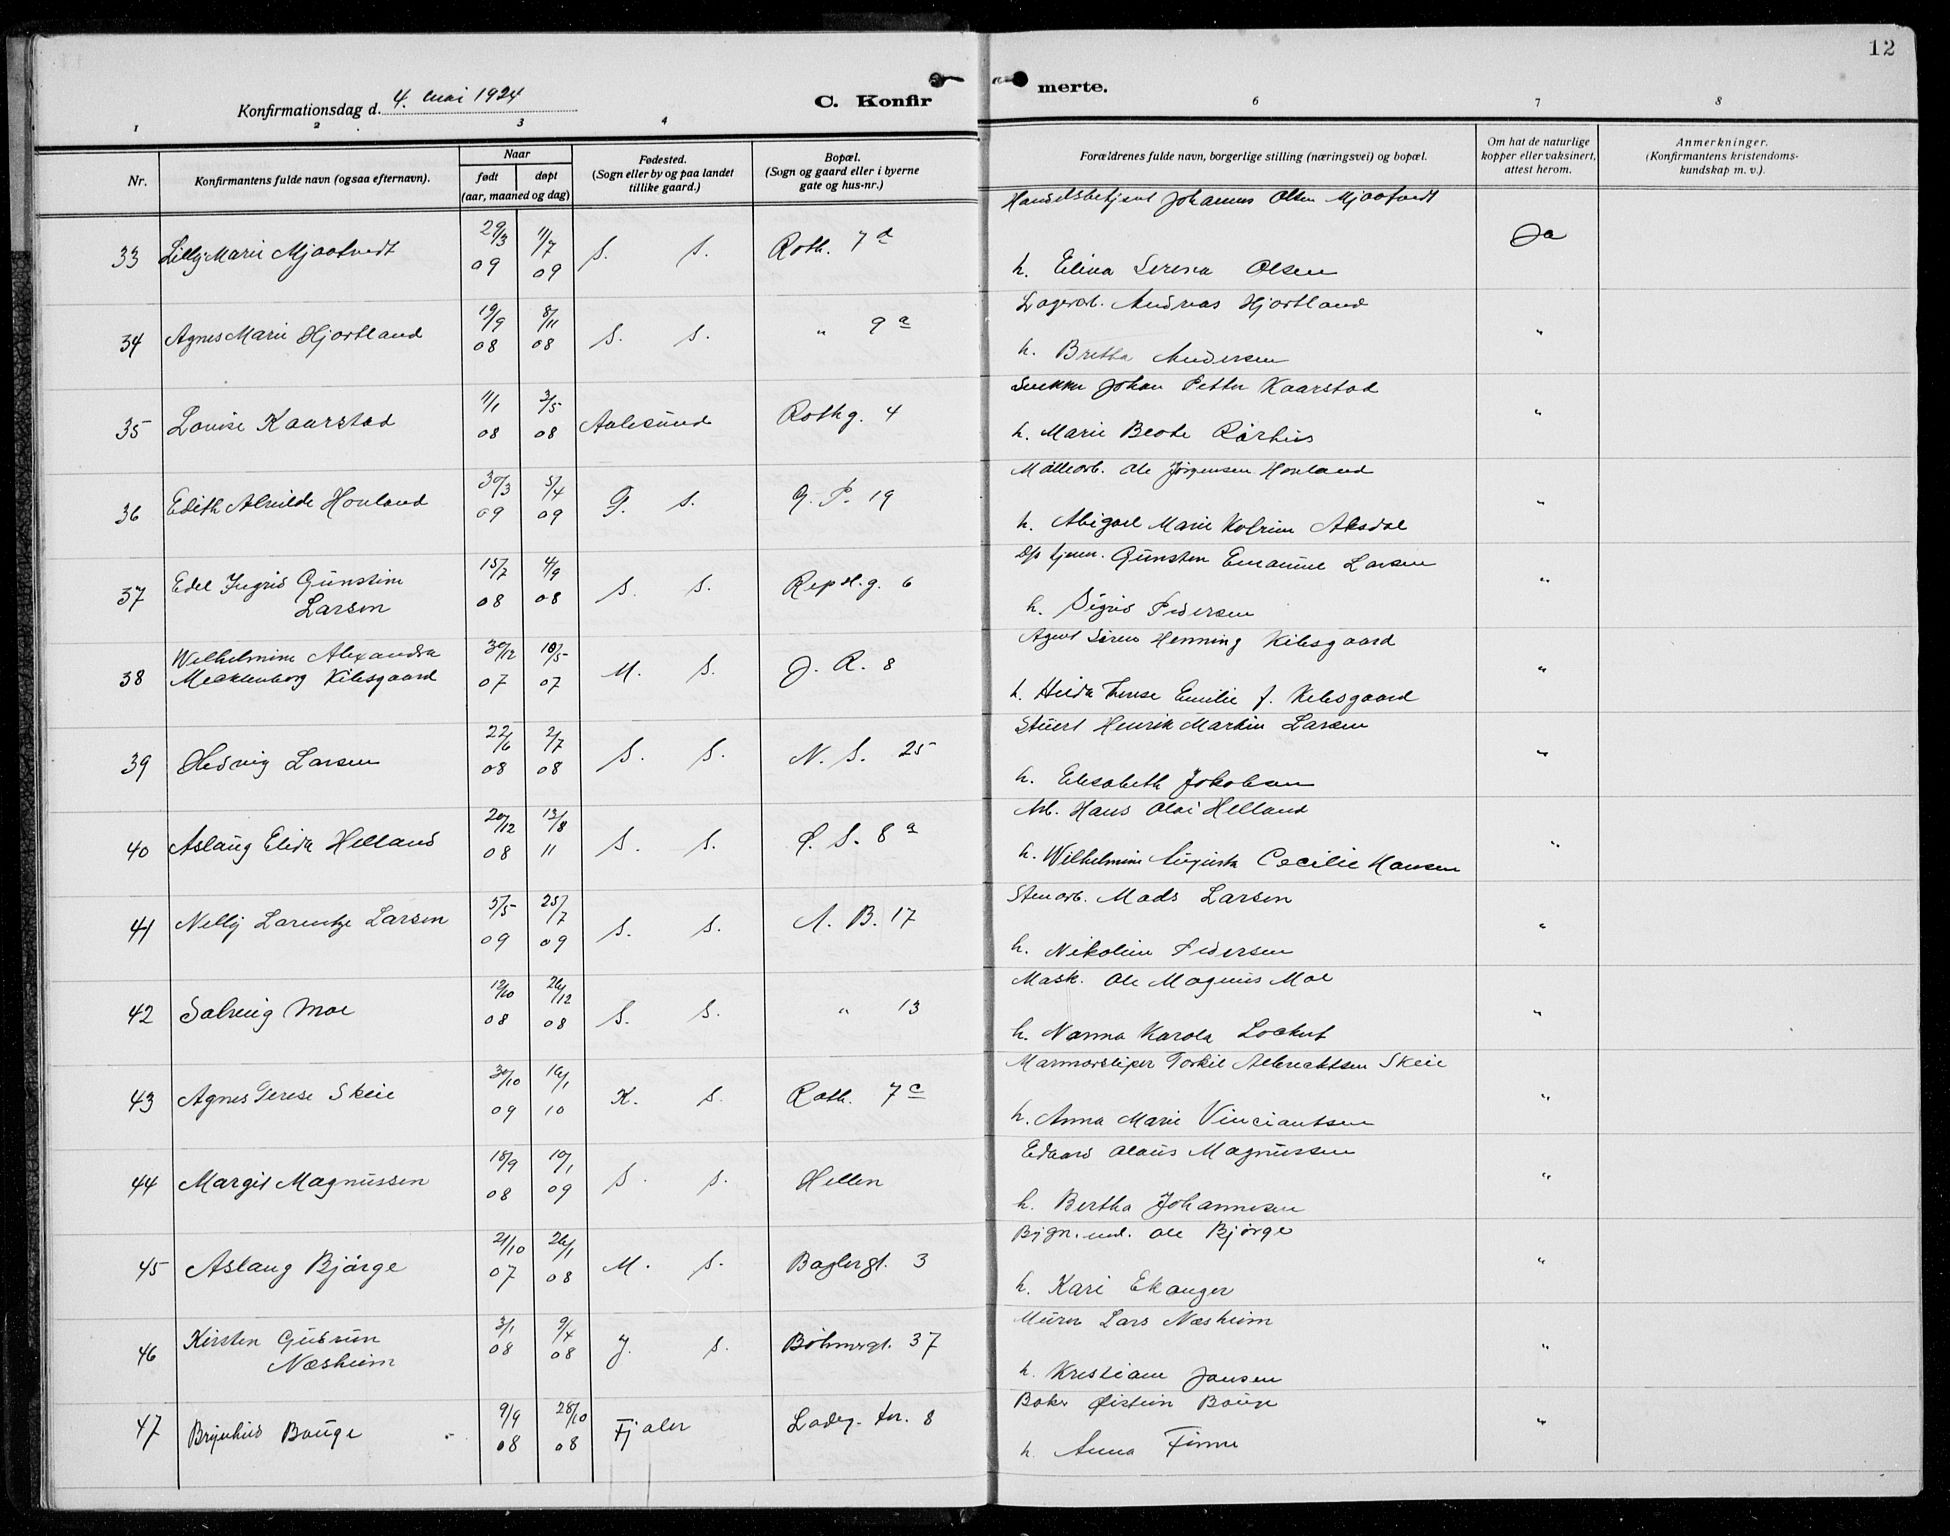 12
Konfirmationsdag d. 4. mai 1924
C. Konfirmerte.
1 2 3 4 6 7 8
Nr.
Konfirmantens fulde navn (ogsaa efternavn).
Naar
født døpt
(aar, maaned og dag)
Fødested.
(Sogn eller by og paa landet
tillike gaard.)
Bopæl.
(Sogn og gaard eller i byerne
gate og hus-nr.)
Forældrenes fulde navn, borgerlige stilling (næringsvei) og bopæl.
Om hat de naturlige
kopper eller vaksinert,
attest herom.
Anmerkninger.
(Konfirmantens kristendoms-
kundskap m. v.).
Handelsbetjent Johannes Olsen Mjaatvedt
33 Lilly Marie Mjaatvedt 29/3 09 11/7 09 S. S. Roth. 7 d Ja
h. Elina Serena Olsen
Lagerarb. Andreas Hjortland
34 Agnes Marie Hjortland 19/9 08 8/11 08 S. S. " 9 a "
h. Bretha Andersen
Snekker Johan Petter Kaarstad
35 Lovise Kaarstad 11/1 08 3/5 08 Aalesund Rothg. 4 "
h. Marie Beate Rørhus
Møllearb. Ole Jørgensen Hovland
36 Edith Alvilde Hovland 30/3 09 5/4 09 G. S. G. P. 19 "
h. Abigael Marie Kolrine Aksdal
Gunsten Emanuel Larsen
37 Edel Ingrid Gunstine
Larsen 15/7 08 4/9 08 S. S. Repsl.g. 6 "
h. Sigrid Pedersen
Agent Søren Henning Kibsgaard
38 Wilhelmine Alexandra
Mecklenborg Kibsgaard 30/12 07 10/5 07 M. S. J. R. 8 "
h. Therese Emilie f. Kibsgaard
Stuert Henrik Martin Larsen
39 Hedvig Larsen 22/6 08 2/7 08 S. S. N. S. 25 "
h. Elisabeth Jakobsen
Arb. Hans Olai Helland
40 Aslaug Elida Helland 20/12 08 13/8 11 S. S. Ø. S. 8 a "
h. Wilhelmine Augusta Cecilie Hansen
Stenarb. Mads Larsen
41 Nelly Larentze Larsen 5/5 09 25/7 09 S. S. A. B. 17 "
h. Nikoline Pedersen
Mask. Ole Magnus Moe
42 Solveig Moe 12/10 08 26/12 08 S. S. " 13 "
h. Nanna Karola Lockert
Marmorsliper Torkil Albrechtsen Skeie
43 Agnes Terese Skeie 30/10 09 16/1 10 K. S. Roth. 7 c "
h. Anna Marie Vinciantsen
Edvard Olaus Magnussen
44 Margit Magnussen 18/9 08 10/1 09 S. S. Hellen "
h. Bertha Johannesen
Bygn. Ole Bjørge
45 Aslaug Bjørge 21/10 07 26/1 08 M. S. Baglergt. 3 "
h. Kari Ekanger
Murer Lars Næsheim
46 Kirsten Gudrun
Næsheim 3/1 08 9/4 08 J. S. Bøhmergt. 37 "
h. Kristiane Jansen
Baker Øistein Bauge
47 Brynhild Bauge 9/9 08 28/10 08 Fjaler Ladeg. ter. 8 "
h. Anna Finne